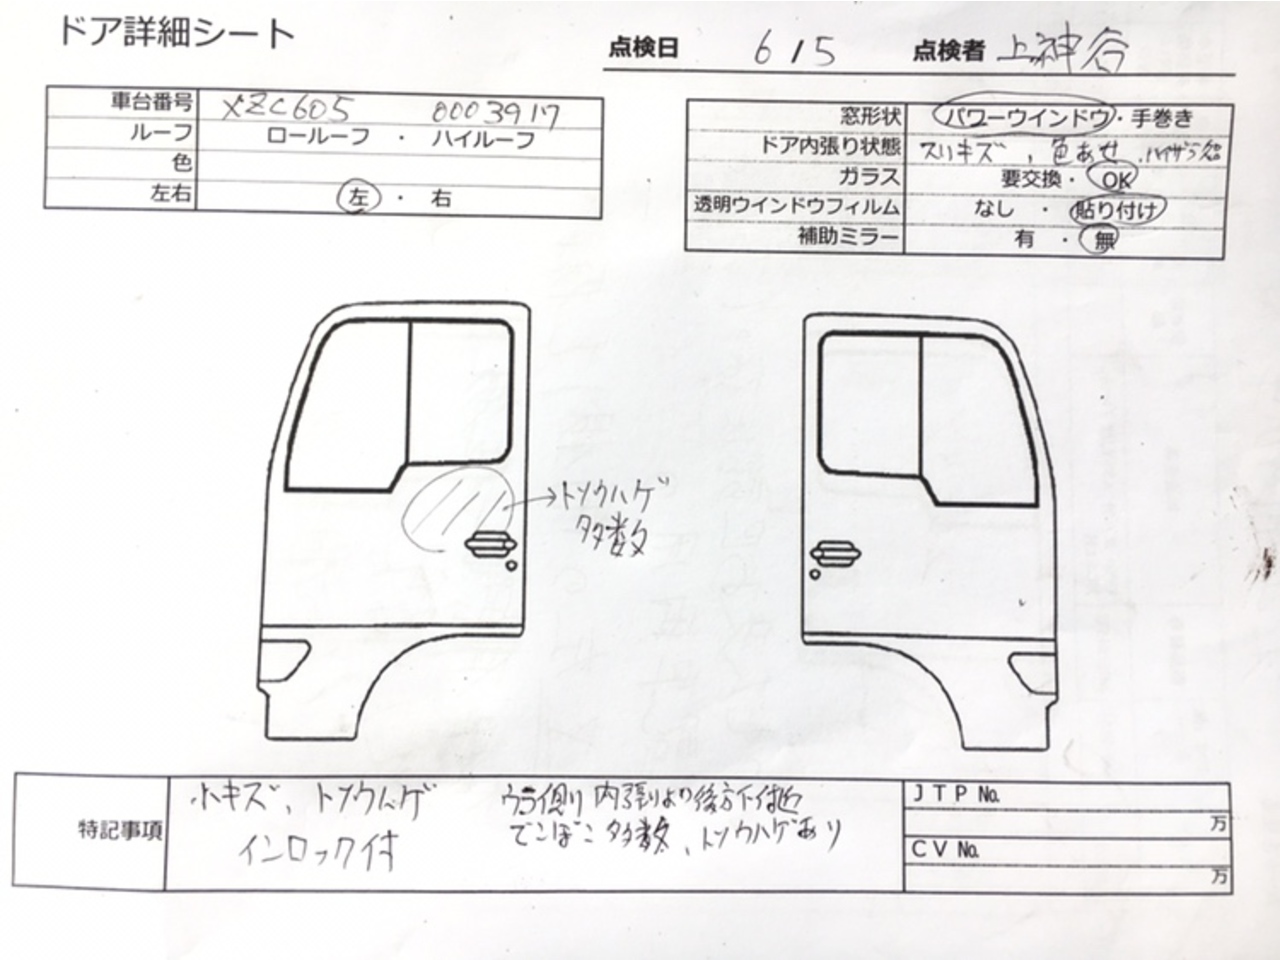 ドア詳細シート
点検日 6/5 点検者 上神谷
車台番号 XZC605 0003917
ルーフ ロールーフ ・ ハイルーフ
色
左右 左 ・ 右
窓形状 パワーウインドウ・手巻き
ドア内張り状態 スリキズ、色あせ、
ガラス 要交換・OK
透明ウインドウフィルム なし ・ 貼り付け
補助ミラー 有 ・ 無
→トソウハゲ
多数
特記事項
小キズ、トソウハゲ
インロック付
ウラ側 内張りより後方下付近
でこぼこ多数、トソウハゲあり
JTP No.
万
CV No.
万